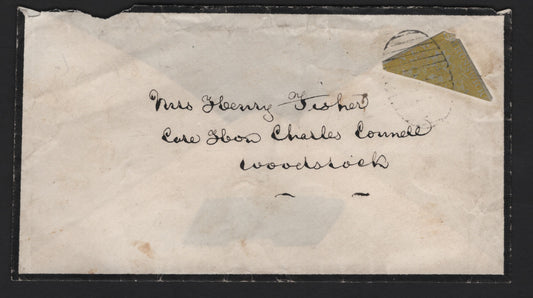 Mrs Henry Fisher
Care Hon Charles Connell
Woodstock